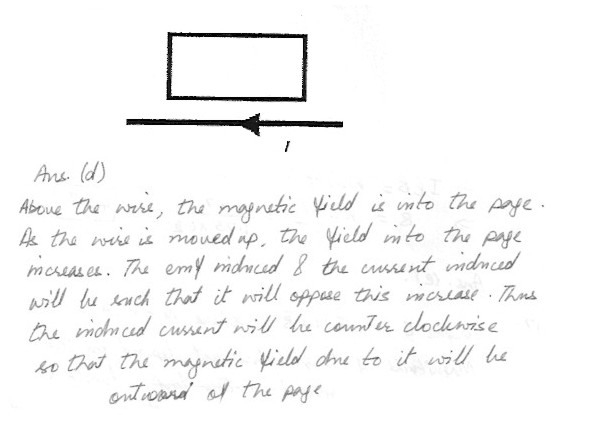 I
Ans. (d)
Above the wire, the magnetic field is into the page.
As the wire is moved up, the field into the page
increases. The emf induced & the current induced
will be such that it will oppose this increase. Thus
the induced current will be counter clockwise
so that the magnetic field due to it will be
outward of the page